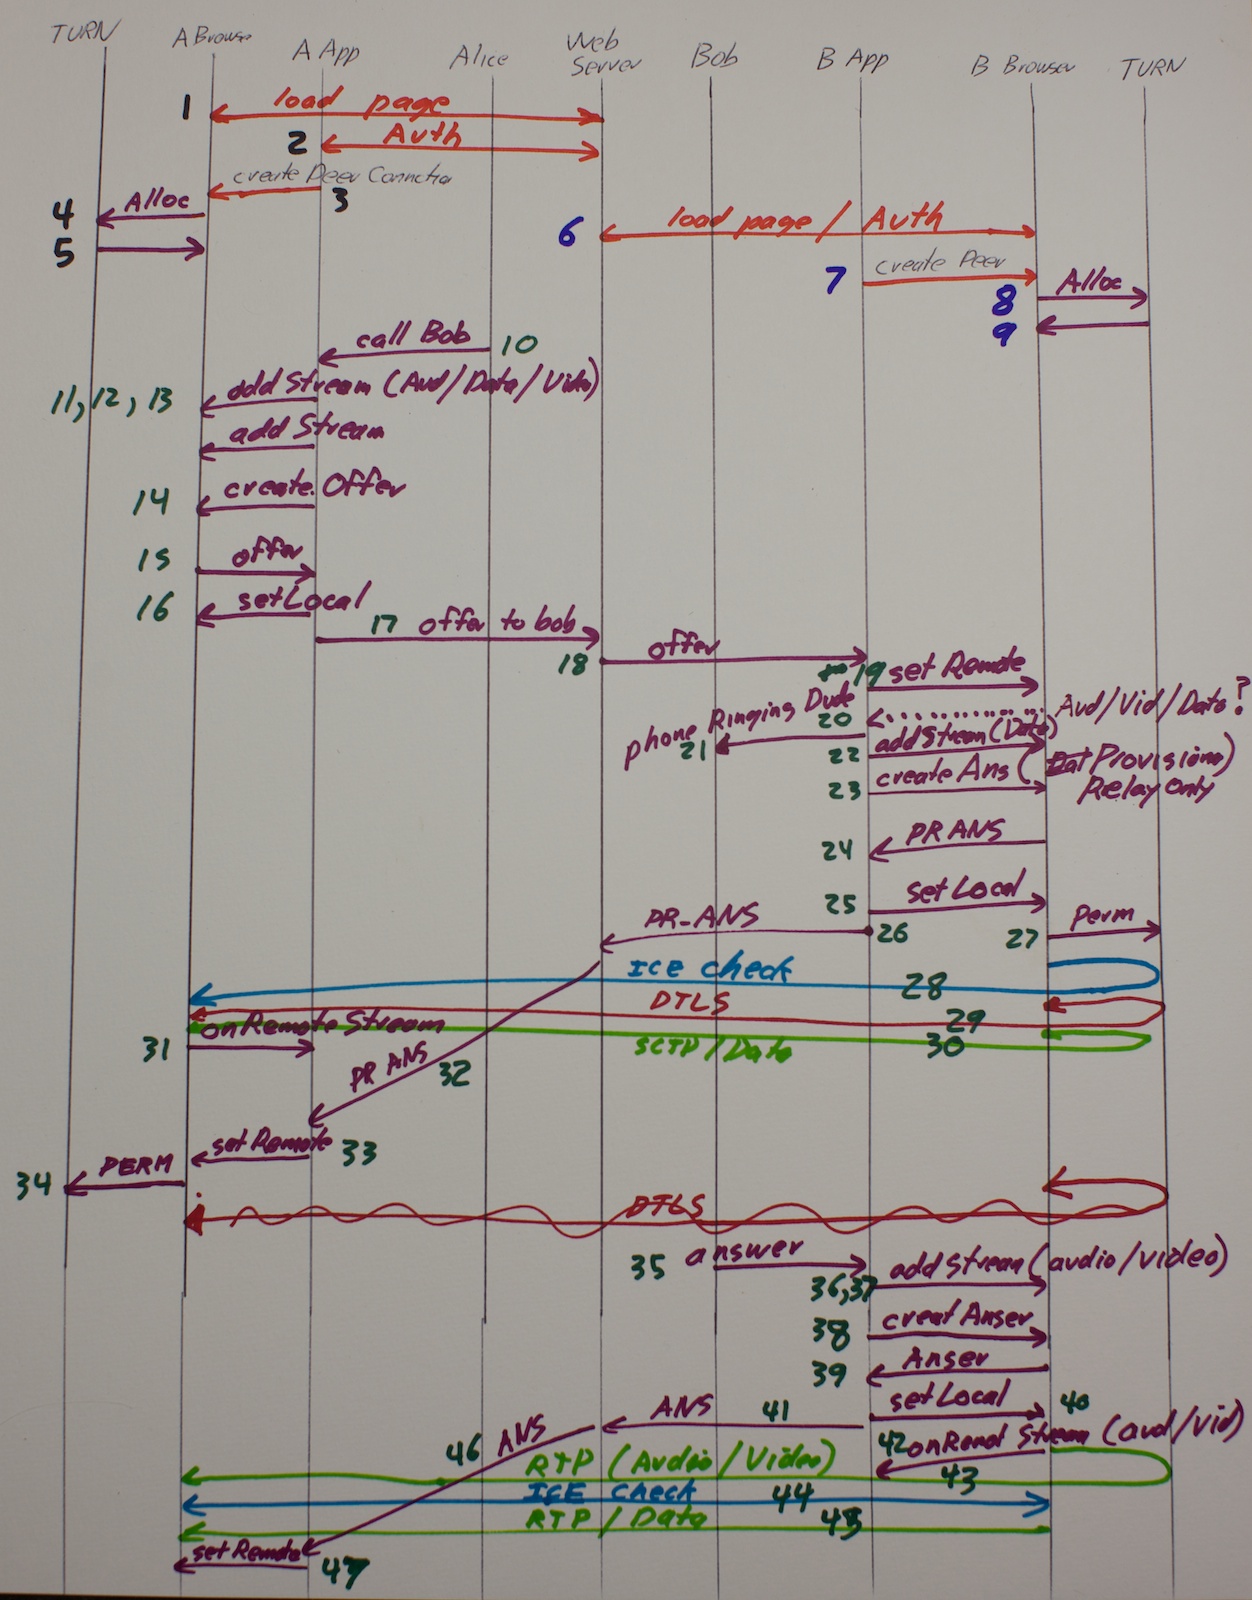 TURN A Browse A App Alice Web Server Bob B App B Browser TURN
1 load page
2 Auth
create Peer Connctio
3
4 Alloc
5
6 load page / Auth
7 create Peer
8 Alloc
9
call Bob 10
11, 12, 13 add Stream (Aud/Data/Vido)
add Stream
14 create Offer
15 offer
16 setLocal
17 offer to bob
18 offer
19 set Remote
20 Aud/Vid/Data?
phone Ringing Dude
21
22 addStream(Data)
23 createAns ( Provision)
Relay Only
24 PR ANS
25 setLocal
PR-ANS 26
27 Perm
ICE check 28
DTLS 29
onRemoteStream
31
SCTP/Data 30
PR ANS 32
setRemote 33
34 PERM
DTLS
35 answer
36,37 addStream(audio/video)
38 creat Anser
39 Anser
setLocal 40
ANS 41
42 onRemot Stream (aud/vid)
46 ANS
RTP (Audio/Video) 43
ICE check 44
RTP / Data 45
setRemote 47